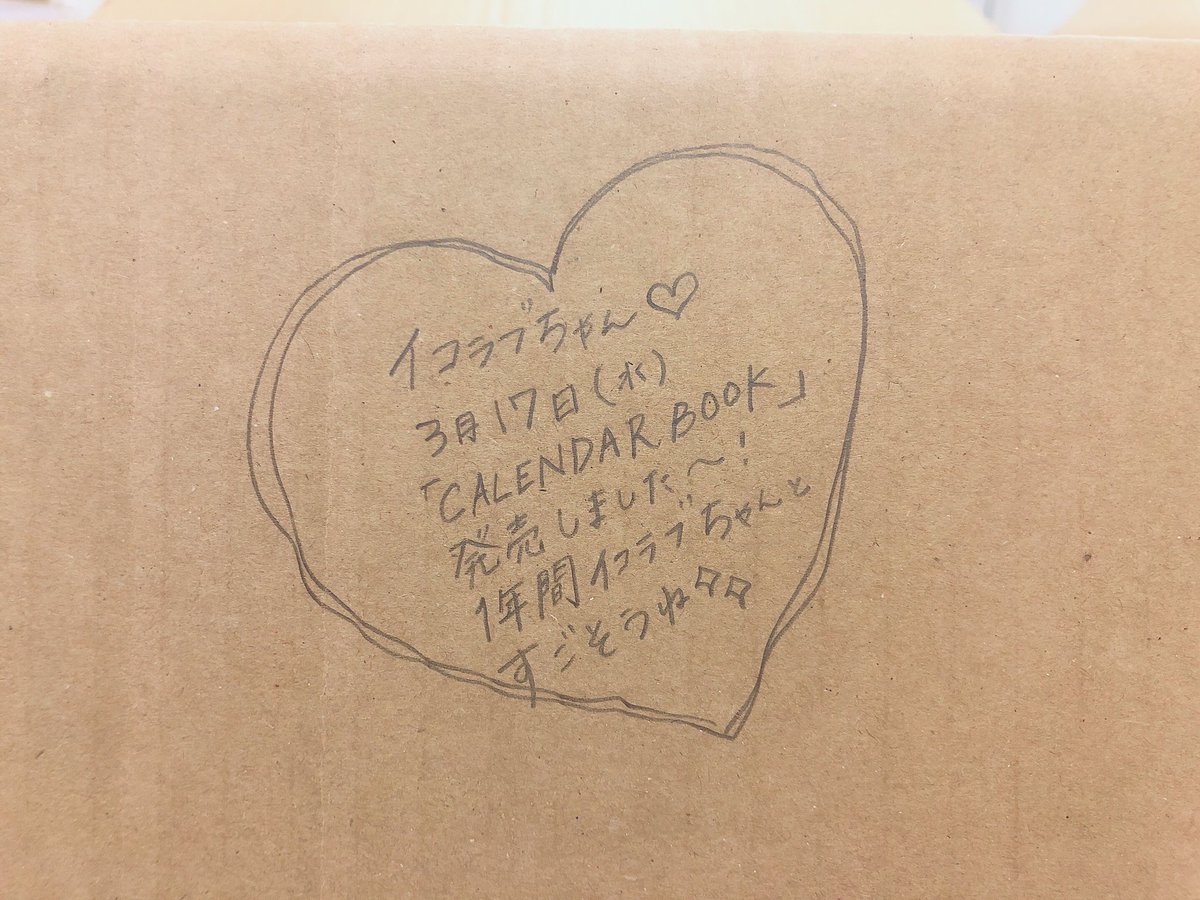 イコラブちゃん♡
3月17日(水)
「CALENDAR BOOK」
発売しました〜!
1年間イコラブちゃんと
すごそうね